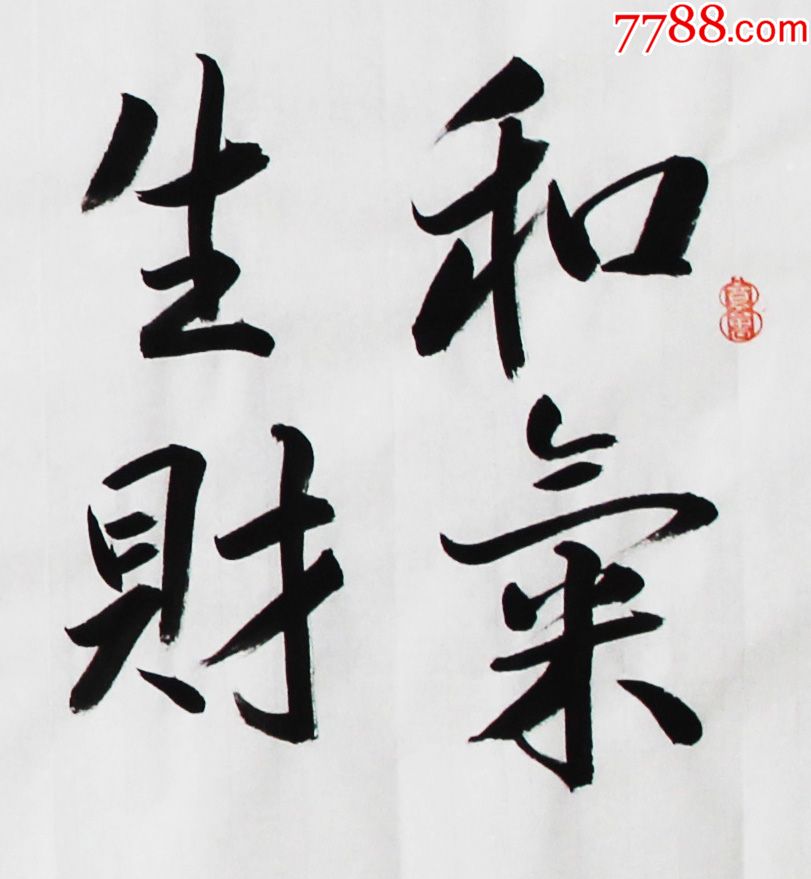 7788.com
和氣
生財